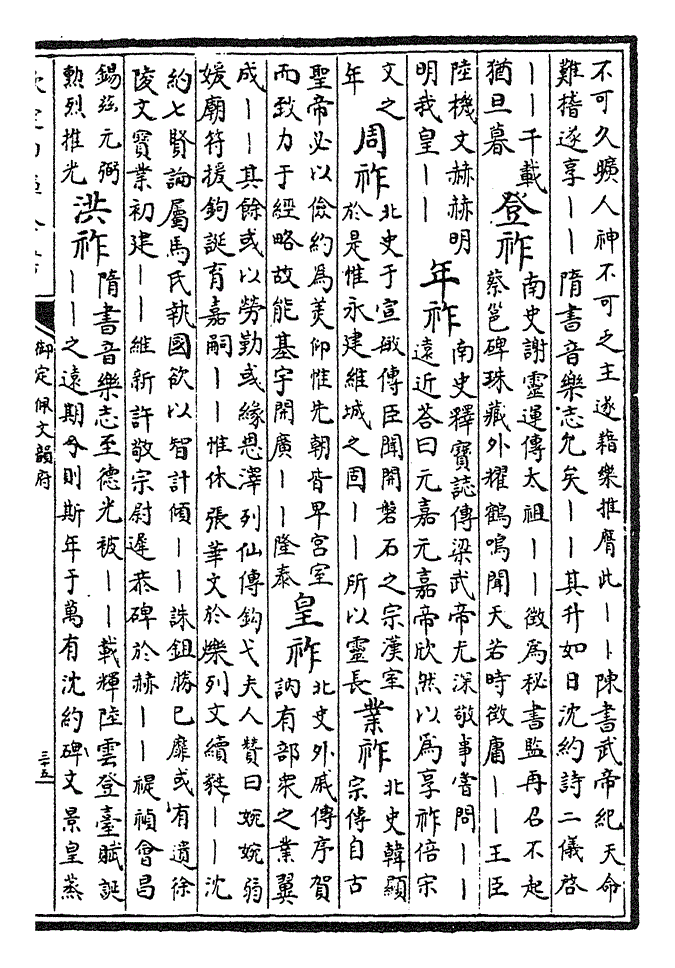 不可久曠人神不可乏主遂藉樂推膺此丨丨陳書武帝紀天命
難稽遂享丨丨隋書音樂志允矣丨丨其升如日沈約詩二儀啓
丨丨千載
猶旦暮
登祚
南史謝靈運傳太祖丨丨徵為秘書監再召不起
蔡邕碑珠藏外耀鶴鳴聞天若時徵庸丨丨王臣
陸機文赫赫明
明我皇丨丨
年祚
南史釋寶誌傳梁武帝尤深敬事嘗問丨丨
遠近荅曰元嘉元嘉帝欣然以為享祚倍宋
文之
年
周祚
北史于宣敏傳臣聞開磐石之宗漢室
於是惟永建維城之固丨丨所以靈長
業祚
北史韓顯
宗傳自古
聖帝必以儉約為美仰惟先朝皆卑宮室
而致力于經略故能基宇開廣丨丨隆泰
皇祚
北史外戚傳序賀
訥有部衆之業翼
成丨丨其餘或以勞勤或緣恩澤列仙傳鈎弋夫人贊曰婉婉弱
媛廟符援鈎誕育嘉嗣丨丨惟休張華文於爍列文續丨丨沈
約七賢論屬馬氏執國欲以智計傾丨丨誅鉏勝已靡或有遺徐
陵文寶業初建丨丨維新許敬宗尉遲恭碑於赫丨丨禔禎會昌
錫兹元弼
勲烈推光
洪祚
隋書音樂志至德光被丨丨載輝陸雲登臺賦誕
丨丨之遠期兮則斯年于萬有沈約碑文景皇蒸
御定佩文韻府
三十五